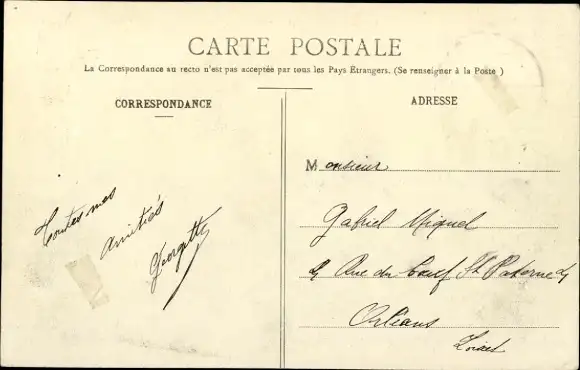 CARTE POSTALE
La Correspondance au recto n'est pas acceptée par tous les Pays Étrangers. (Se renseigner à la Poste )
CORRESPONDANCE
Toutes mes
amitiés
Georgette
ADRESSE
Monsieur
Gabriel Miquel
Rue du Boeuf St Paterne
Orléans
Loiret